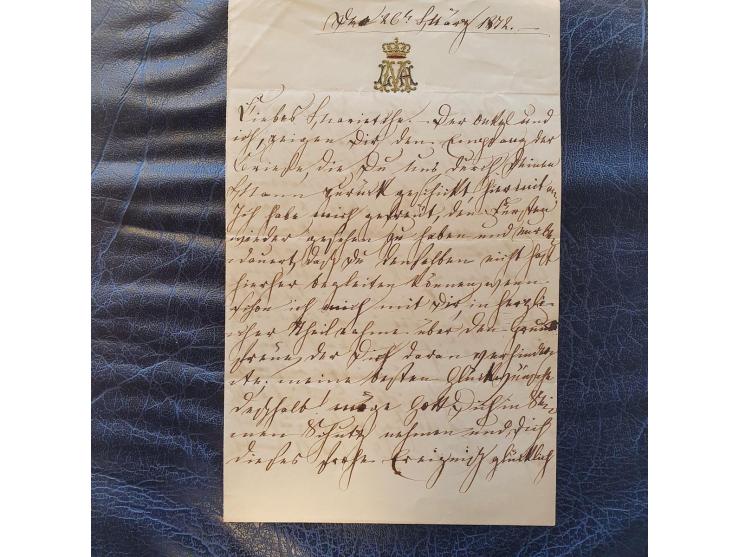 Den 26t. März 1872.
Liebes Mariechen. Der Onkel und
ich, zeigen Dir den Empfang der
Briefe, die Du uns durch Deinen
Mann zurück geschickt, hiermit an
Ich habe mich gefreut, den Fürsten
wieder gesehen zu haben und nur be
dauert, daß Du denselben nicht hast
hierher begleiten können, wenn
schon ich mich mit Dir, in herzli
cher Theilnahme über den Grund
freue, der Dich daran verhinder
te; meine besten Glückwünsche
deßhalb! möge Gott Dich in Sei
nen Schutz nehmen und Dich
dieses frohe Ereigniß glücklich